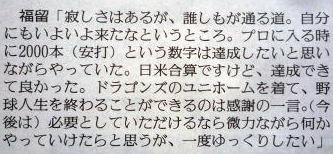 福留「寂しさはあるが、誰しもが通る道。自分
にもいよいよ来たなというところ。プロに入る時
に2000本（安打）という数字は達成したいと思い
ながらやっていた。日米合算ですけど、達成でき
て良かった。ドラゴンズのユニホームを着て、野
球人生を終わることができるのは感謝の一言。（今
後は）必要としていただけるなら微力ながら何か
やっていけたらと思うが、一度ゆっくりしたい」